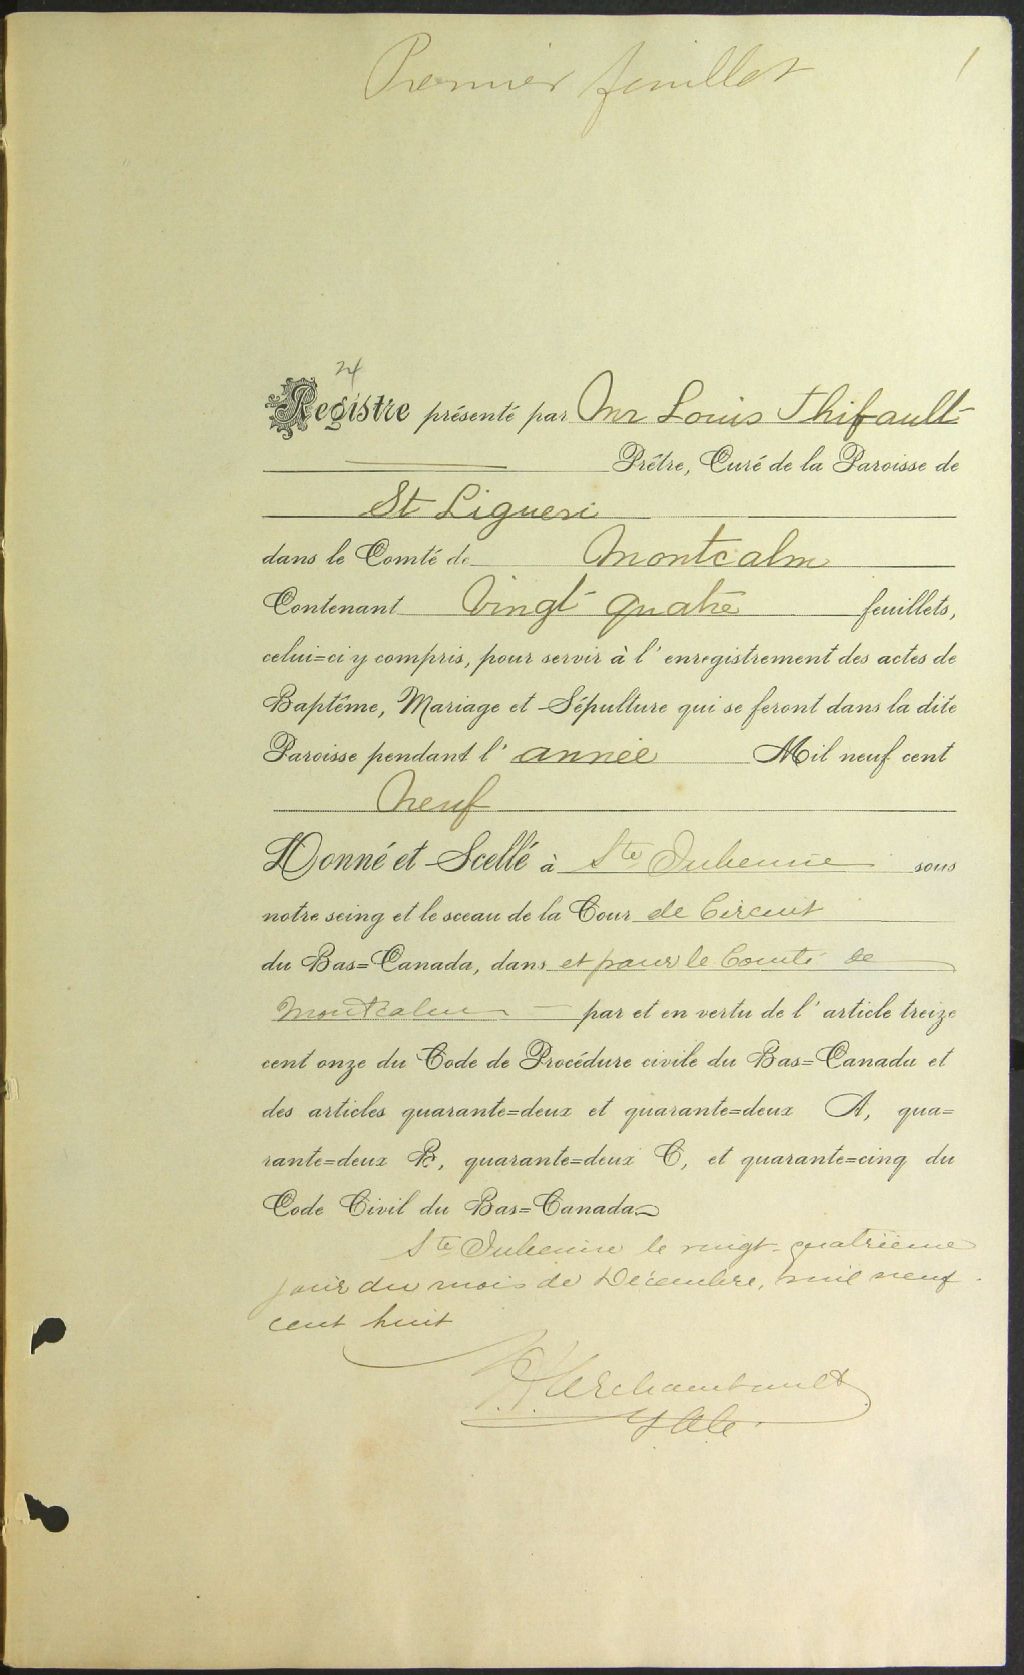 Premier feuillet
1
24
Registre présenté par Mr Louis Thifault
Prêtre, Curé de la Paroisse de
St Liguori
dans le Comté de Montcalm
Contenant Vingt quatre feuillets,
celui=ci y compris, pour servir à l'enregistrement des actes de
Baptême, Mariage et Sépulture qui se feront dans la dite
Paroisse pendant l'année Mil neuf cent
Neuf
Donné et Scellé à Ste Julienne sous
notre seing et le sceau de la Cour de Circuit
du Bas=Canada, dans et pour le Comté de
Montcalm par et en vertu de l'article treize
cent onze du Code de Procédure civile du Bas=Canada et
des articles quarante=deux et quarante=deux A, qua=
rante=deux B, quarante=deux C, et quarante=cinq du
Code Civil du Bas=Canada
Ste Julienne le vingt-quatrième
jour du mois de Décembre, mil neuf
cent huit
Archambault